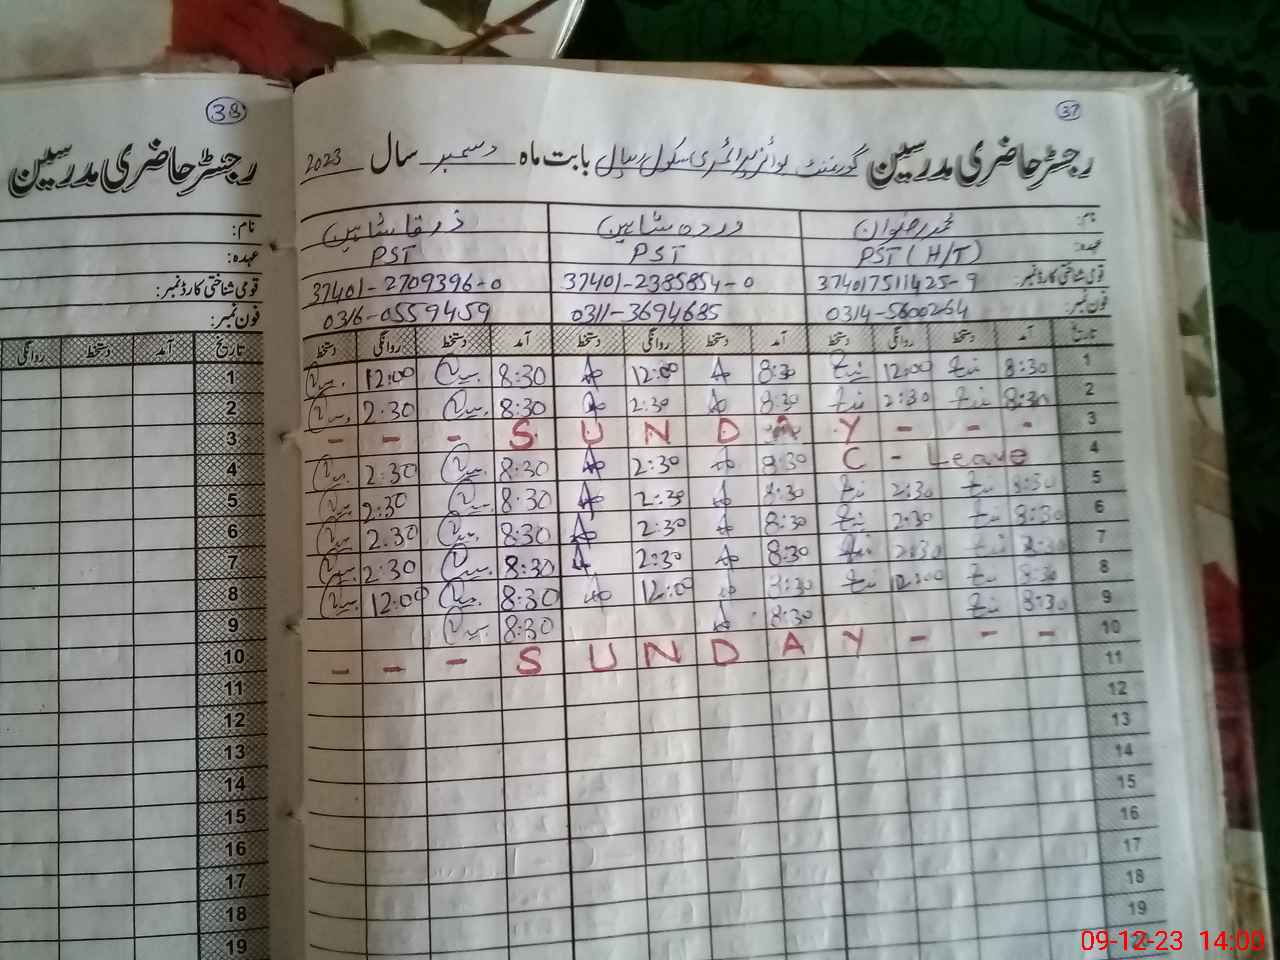 38
رجسٹر حاضری مدرسین
نام:
عہدہ:
قومی شناختی کارڈ نمبر:
فون نمبر:
تاریخ آمد دستخط روانگی
1
2
3
4
5
6
7
8
9
10
11
12
13
14
15
16
17
18
19
37
رجسٹر حاضری مدرسین گورنمنٹ بوائز پرائمری سکول بابت ماہ دسمبر سال 2023
نام: محمد رضوان وردہ شاہین زرقا شاہین
عہدہ: PST (H/T) PST PST
قومی شناختی کارڈ نمبر: 374017511425-9 37401-2385854-0 37401-2709396-0
فون نمبر: 0314-5600264 0311-3694685 0316-0559459
تاریخ آمد دستخط روانگی دستخط آمد دستخط روانگی دستخط آمد دستخط روانگی دستخط
1 8:30 12:00 8:30 12:00 8:30 12:00
2 8:30 2:30 8:30 2:30 8:30 2.30
3 - - - S U N D A Y - - -
4 C - Leave 8:30 2:30 8:30 2:30
5 8:30 2:30 8:30 2:30 8:30 2:30
6 8:30 2:30 8:30 2:30 8:30 2.30
7 8:30 2:30 8:30 2:30 8:30 2:30
8 8:30 12:00 8:30 12:00 8:30 12:00
9 8:30 8:30 8:30
10 - - - S U N D A Y - - -
11
12
13
14
15
16
17
18
19
09-12-23 14:00